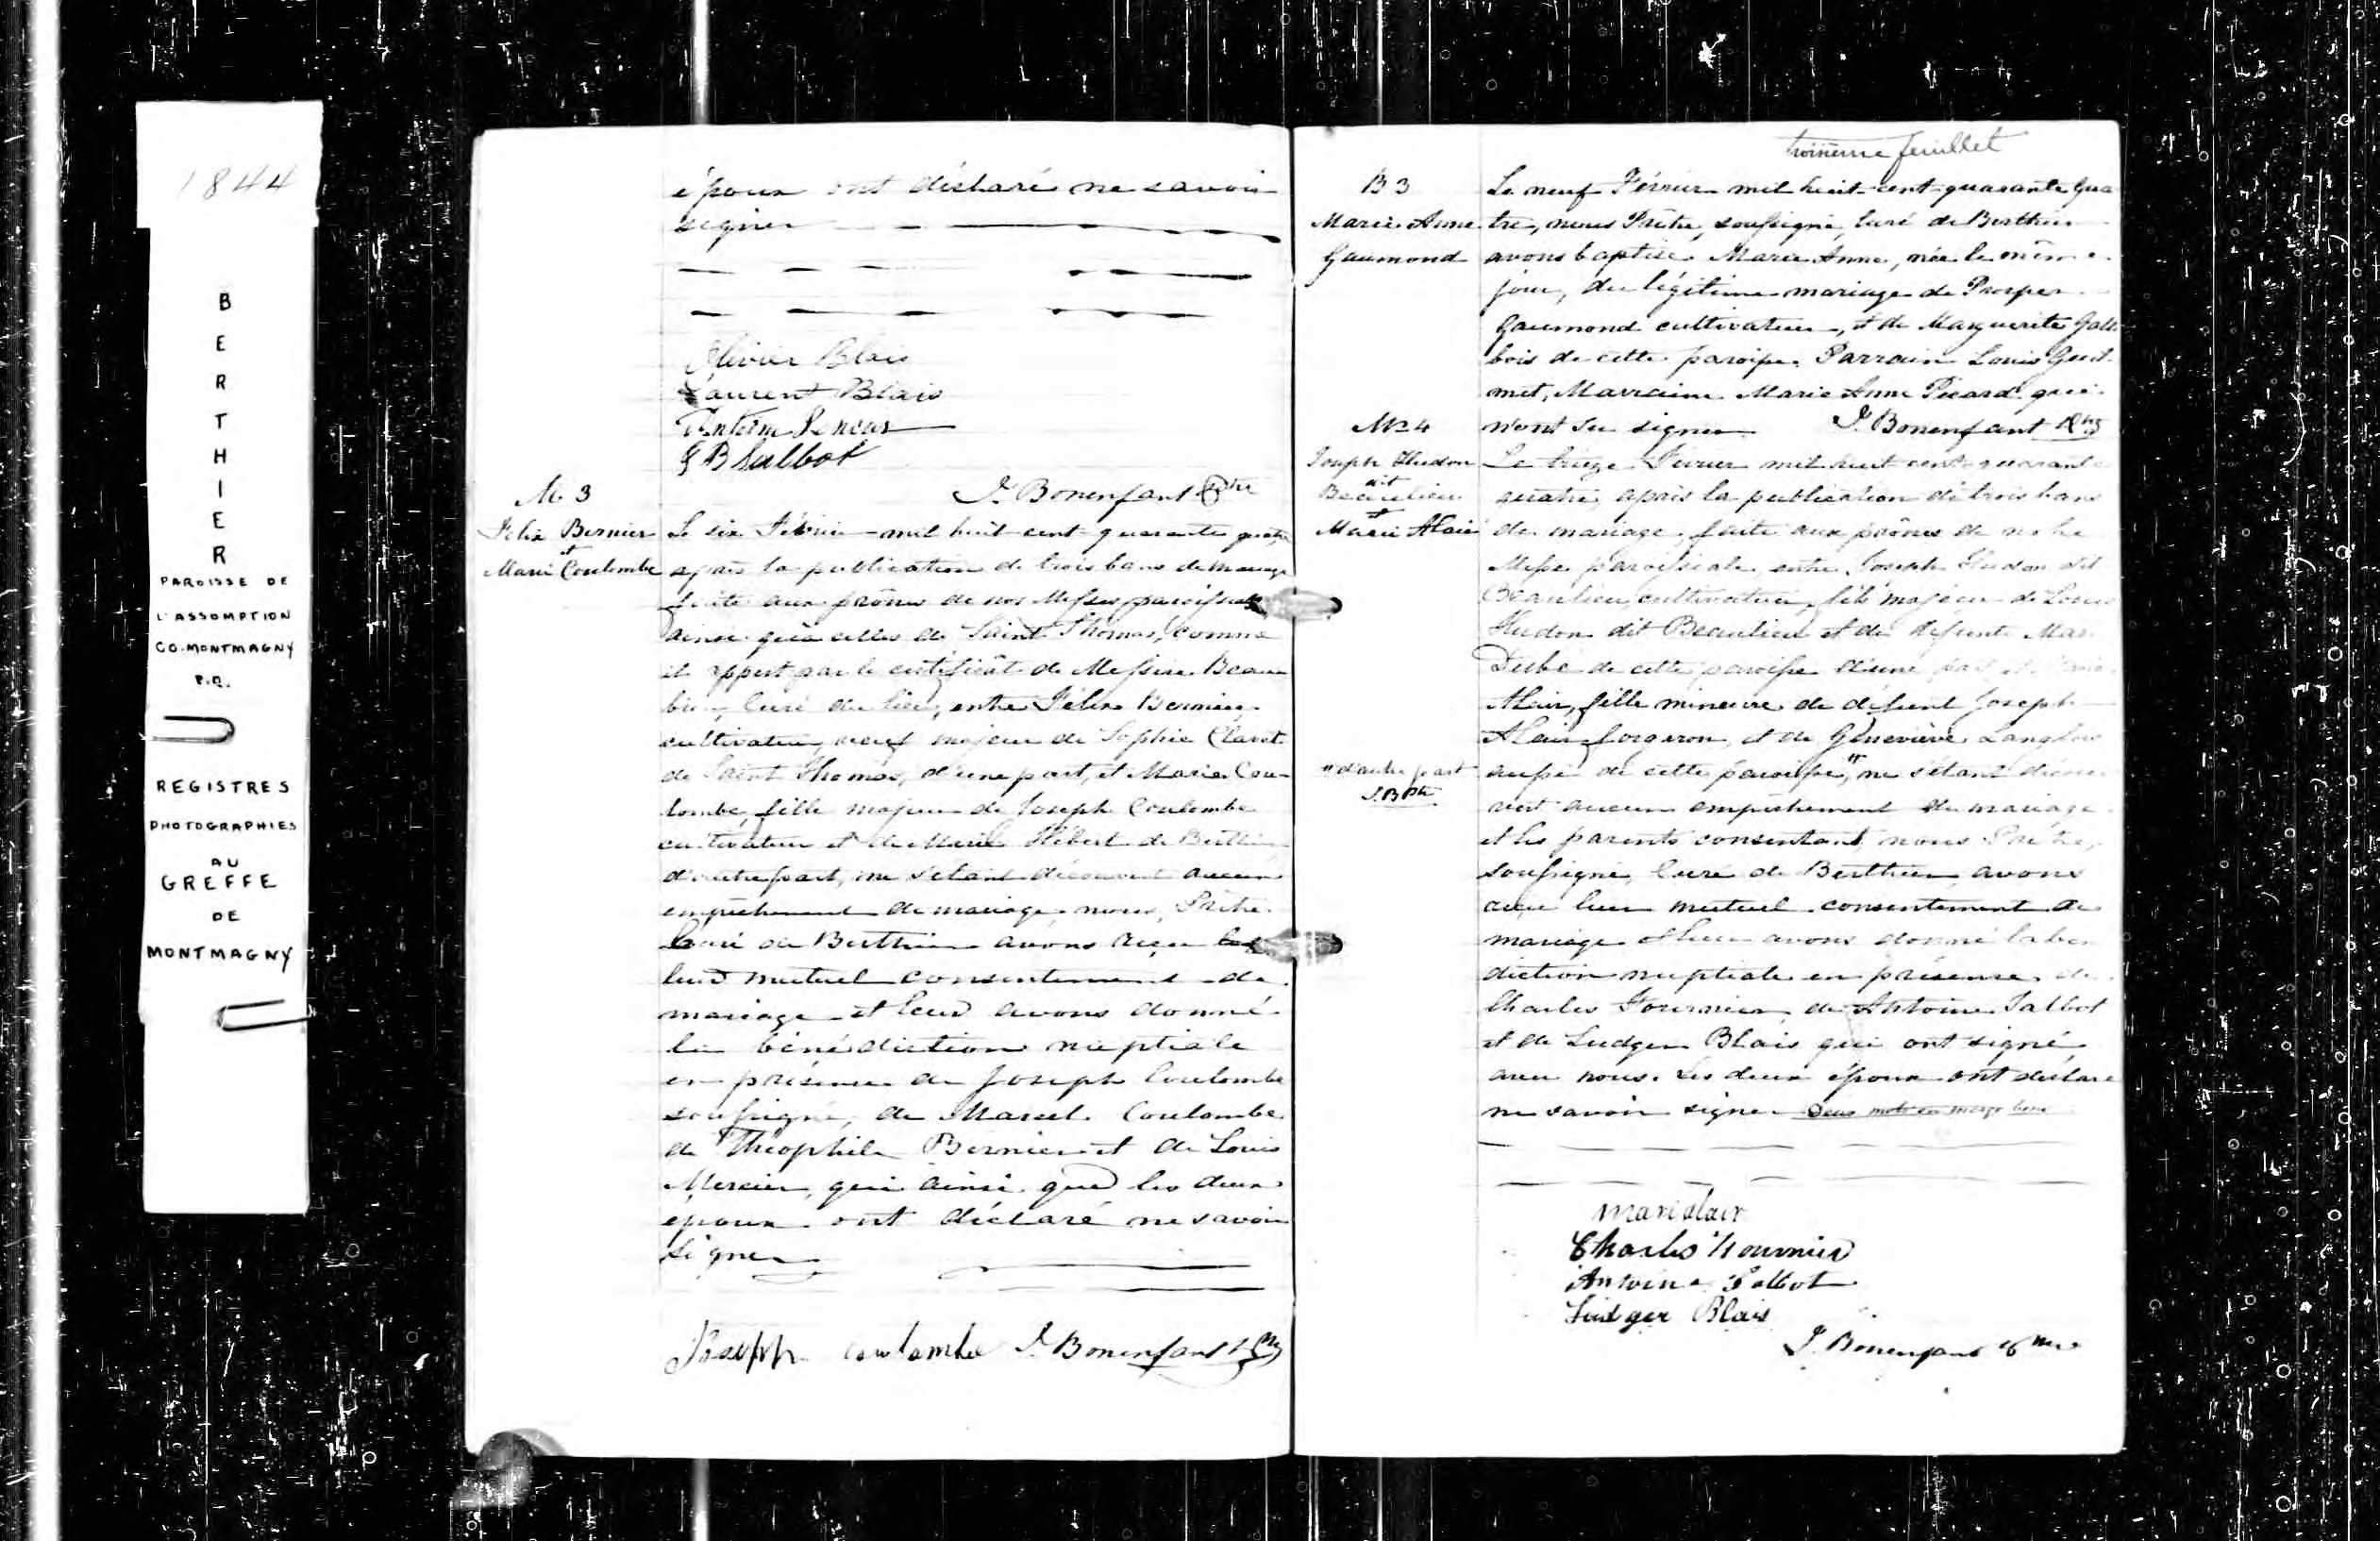 1844
BERTHIER
PAROISSE DE
L'ASSOMPTION
CO. MONTMAGNY
P.Q.
REGISTRES
PHOTOGRAPHIES
AU
GREFFE
DE
MONTMAGNY
époux ont déclaré ne savoir
signer
Olivier Blais
Laurent Blais
J. Bonenfant Ptre
M 3
Felix Bernier
et
Marie Coulombe
Le six Février mil huit cent quarante quatre
après la publication de trois bans de mariage
faite aux prônes de nos Messes paroissiales
ainsi qu'à celles de Saint Thomas, comme
il appert par le certificât de Messire Beau
bien, Curé du lieu, entre Félix Bernier,
cultivateur, veuf majeur de Sophie
de Saint Thomas, d'une part, et Marie Cou-
lombe, fille majeure de Joseph Coulombe
cultivateur et de Marie Hébert de Berthier
d'autre part, ne s'étant découvert aucun
empêchement de mariage, nous, Prêtre
Curé de Berthier avons reçu
leur mutuel consentement de
mariage et leur avons donné
la bénédiction nuptiale
en présence de Joseph Coulombe
soussigné, de Marcel Coulombe
de Théophile Bernier et de Louis
Mercier, qui ainsi que les deux
époux ont déclaré ne savoir
signer
Joseph coulombe J. Bonenfant Ptre
troisième feuillet
B 3
Marie Anne
Gaumond
Le neuf Février mil huit cent quarante qua
tre, nous Prêtre, soussigné, Curé de Berthier
avons baptisé Marie Anne, née le même
jour, du légitime mariage de Prosper
Gaumond cultivateur, et de Marguerite Gall
bois de cette paroisse. Parrain Louis
Marraine Marie Anne Picard qui
n'ont su signer J. Bonenfant Ptre
M 4
Joseph Hudon
dit
Beaulieu
et
Marie Alair
Le treize Février mil huit cent quarante
quatre, après la publication de trois bans
de mariage, faite aux prônes de notre
Messe paroissiale, entre Joseph Hudon dit
Beaulieu, cultivateur, fils majeur de Louis
Hudon dit Beaulieu et de defunte
Dube de cette paroisse d'une part et
Alair, fille mineure de défunt Joseph
Alair forgeron, et de Géneviève Langlois
aussi de cette paroisse, " ne s'étant décou
vert aucun empêchement de mariage
" d'autre part
J. B Ptre
et les parents consentant nous Prêtre,
soussigné, Curé de Berthier, avons
reçu leur mutuel consentement de
mariage et leur avons donné la béné
diction nuptiale en présence de
Charles Fournier, de Antoine Talbot
et de Ludger Blais qui ont signé
avec nous. Les deux époux ont déclaré
ne savoir signer Deux mots en marge bons
mari alair
Charles Fournier
Antoine Talbot
Ludger Blais
J. Bonenfant Ptre